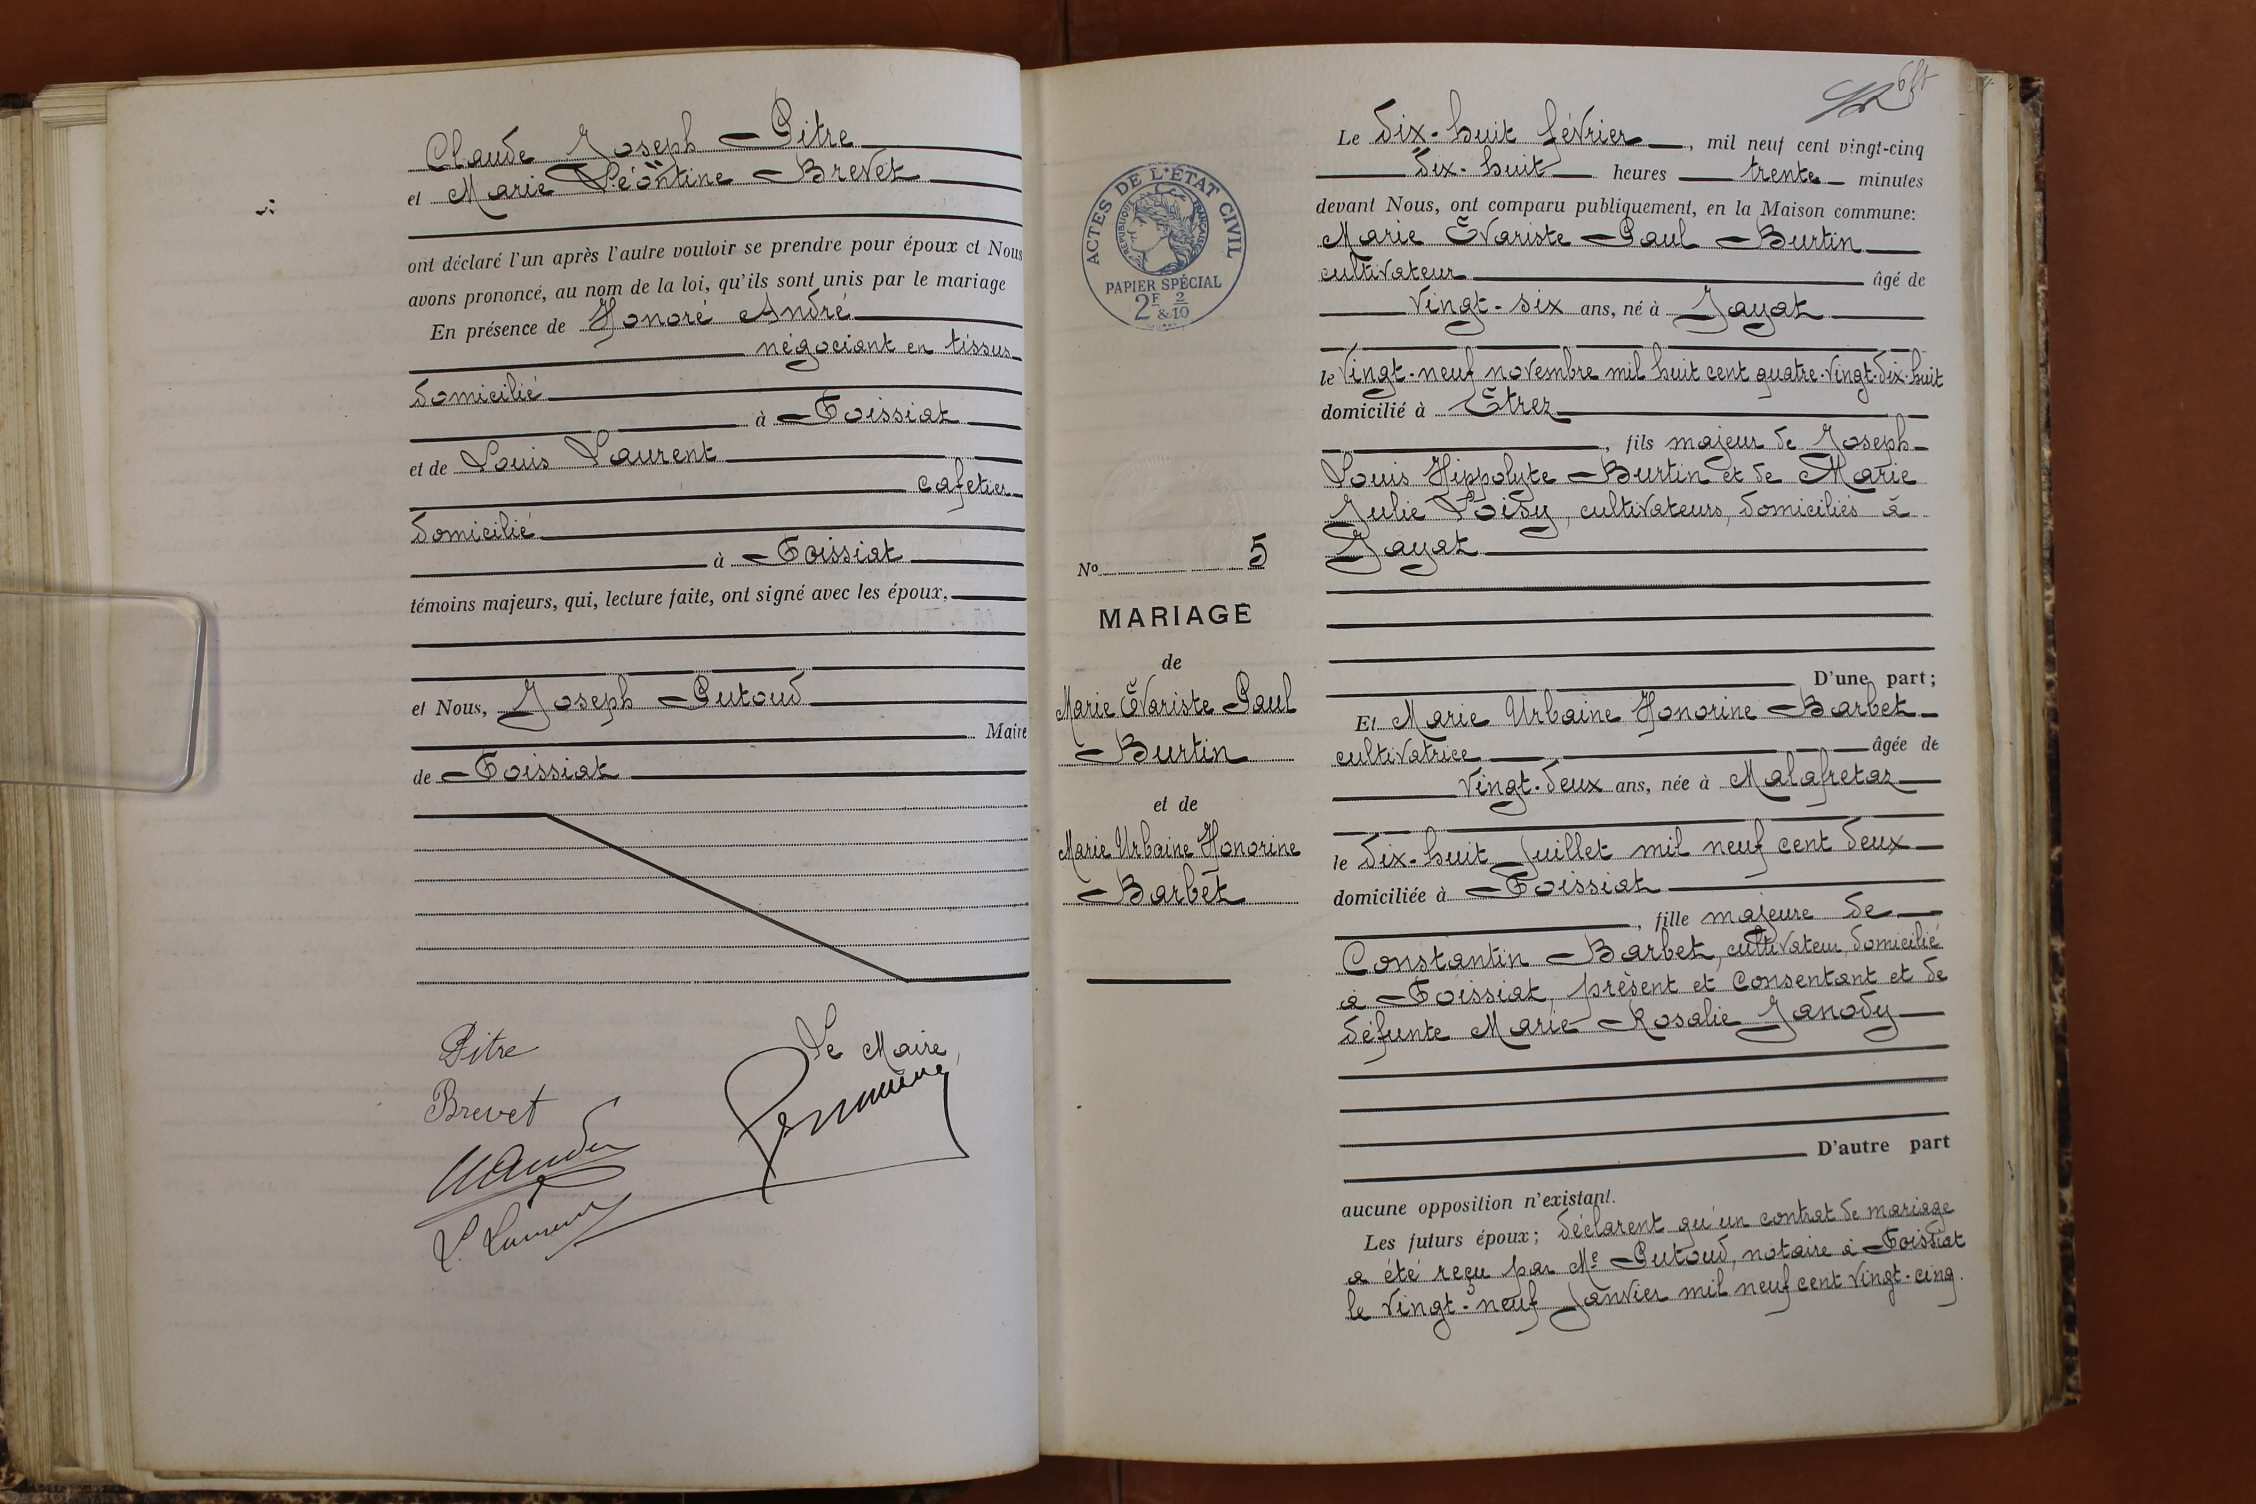 Claude Joseph Pitre
et Marie Léontine Brevet
ont déclaré l'un après l'autre vouloir se prendre pour époux et Nous
avons prononcé, au nom de la loi, qu'ils sont unis par le mariage
En présence de Honoré André
négociant en tissus
domicilié
à Foissiat
et de Louis Laurent
cafetier
domicilié
à Foissiat
témoins majeurs, qui, lecture faite, ont signé avec les époux,
et Nous, Joseph Putoud
Maire
de Foissiat
Pitre
Le Maire,
Brevet
L. Laurent
Le dix-huit février, mil neuf cent vingt-cinq
dix-huit heures trente minutes
devant Nous, ont comparu publiquement, en la Maison commune:
Marie Évariste Paul Burtin
cultivateur âgé de
vingt-six ans, né à Jayat
le vingt-neuf novembre mil huit cent quatre-vingt-dix-huit
domicilié à Étrez
, fils majeur de Joseph
Louis Hippolyte Burtin et de Marie
Julie Loisy, cultivateurs, domiciliés à
Jayat
D'une part;
Et Marie Urbaine Honorine Barbet
cultivatrice âgée de
vingt-deux ans, née à Malafretaz
le dix-huit juillet mil neuf cent deux
domiciliée à Foissiat
, fille majeure de
Constantin Barbet, cultivateur, domicilié
à Foissiat, présent et consentant et de
défunte Marie Rosalie Janody
D'autre part
aucune opposition n'existant.
Les futurs époux; déclarent qu'un contrat de mariage
a été reçu par Me Putoud, notaire à Foissiat
le vingt-neuf janvier mil neuf cent vingt-cinq.
ACTES DE L'ÉTAT CIVIL
RÉPUBLIQUE FRANÇAISE
PAPIER SPÉCIAL
2F & 2/10
No 5
MARIAGE
de
Marie Évariste Paul
Burtin
et de
Marie Urbaine Honorine
Barbet